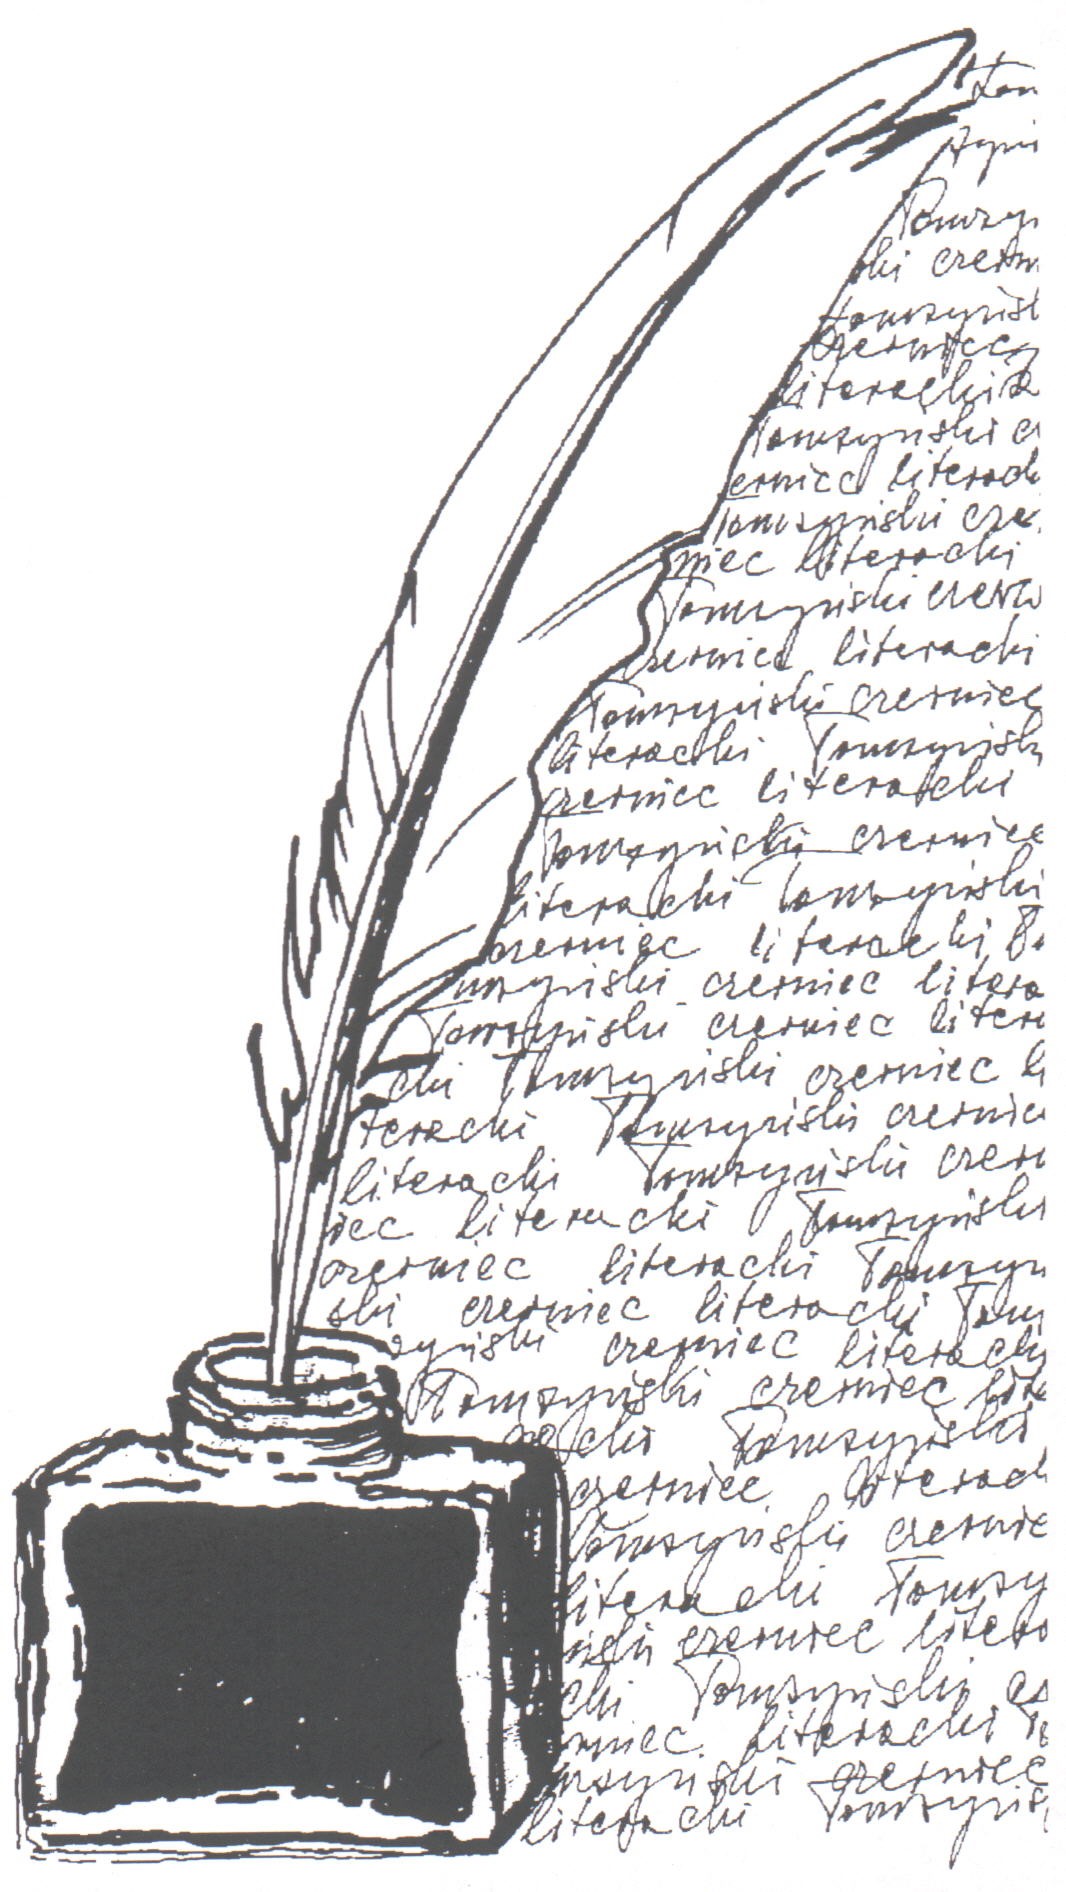 Łom
żyń
Łomży
ski czerw
Łomżyńsk
czerwiec
literacki
Łomżyński cz
erwiec literack
Łomżyński czer
wiec literacki
Łomżyński czerw
czerwiec literacki
Łomżyński czerwiec
literacki Łomżyńsk
czerwiec literacki
Łomżyński czerwiec
literacki Łomżyński
czerwiec literacki Ło
mżyński czerwiec litera
Łomżyński czerwiec litera
cki Łomżyński czerwiec li
teracki Łomżyński czerwiec
literacki Łomżyński czerw
iec literacki Łomżyński
czerwiec literacki Łomżyń
ski czerwiec literacki Łom
żyński czerwiec literacki
Łomżyński czerwiec lite
racki Łomżyński
czerwiec literack
Łomżyński czerwie
literacki Łomży
ński czerwiec litera
cki Łomżyński cz
erwiec literacki Ło
mżyński czerwiec
literacki Łomżyńs